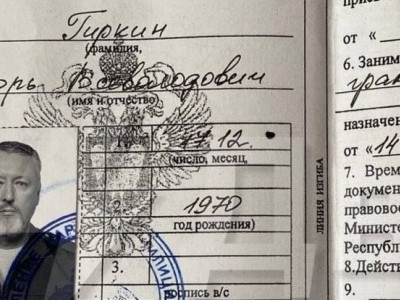 Гиркин
(фамилия,
орь Всеволодович
(имя и отчество)
17.12.
(число, месяц,
1970
год рождения)
3.
роспись в/с
ЛИНИЯ ИЗГИБА
от «
6. Заним
гран
назначен
от «14
7. Врем
докумен
правовое
Министе
Республи
8.Действ
9.